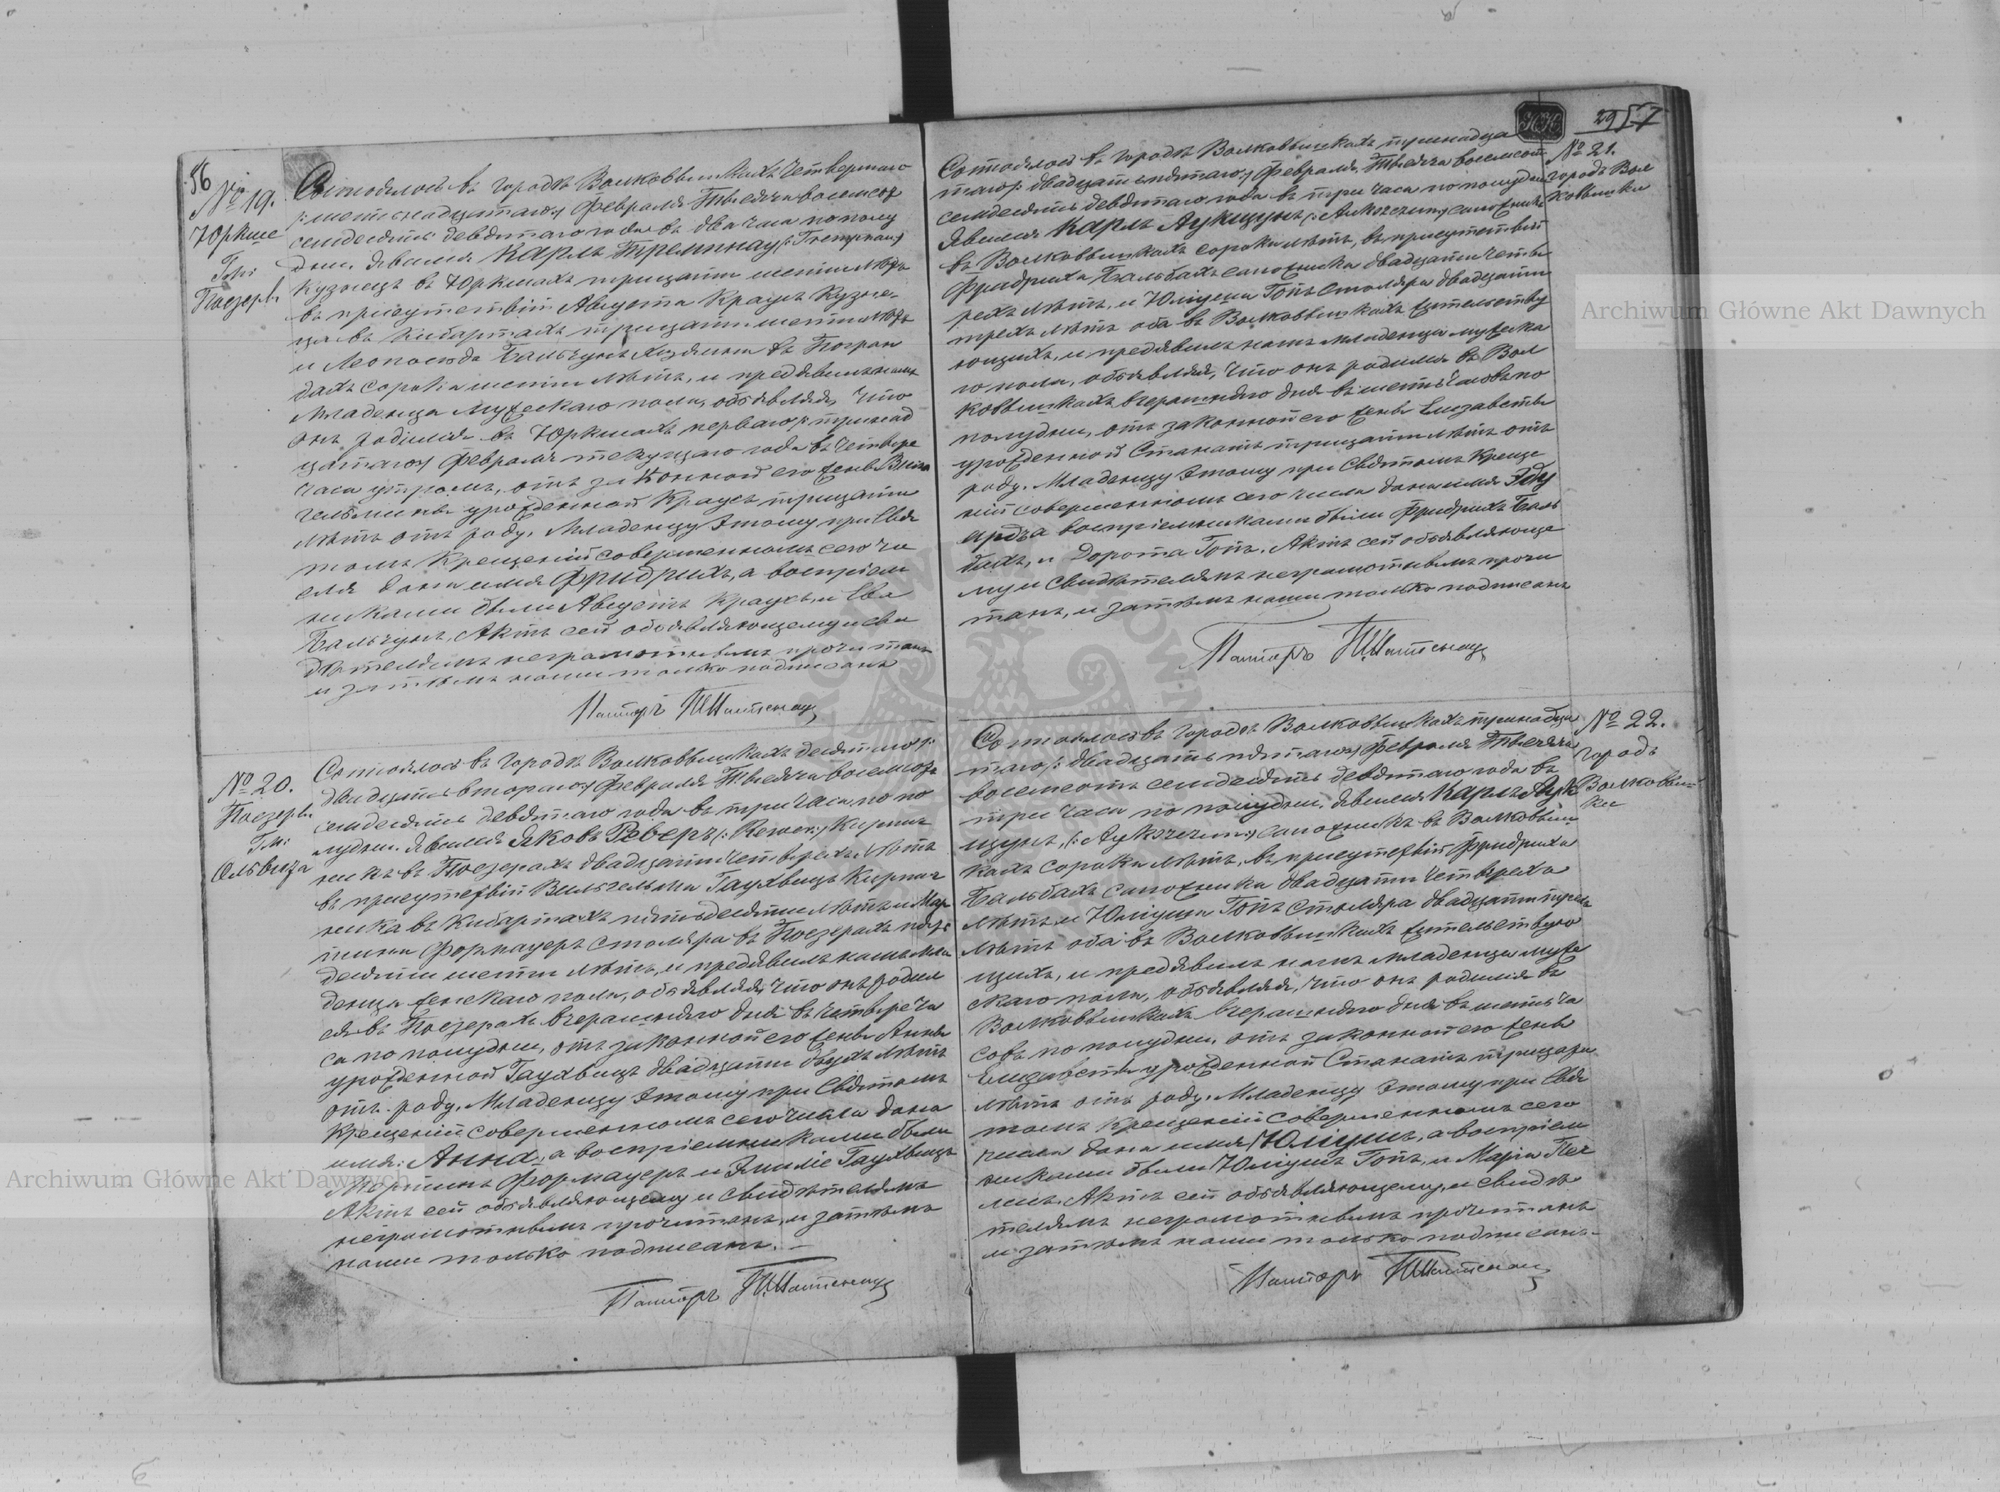 56
№ 19.
Юркше
Гм:
Поезеры
Состоялось в городе Волковышках четвертаго
/:шестнадцатаго:/ Февраля Тысяча восемсот
семдесятъ девятаго года въ два часа по полу
дни. Явился Карлъ Тремпнау /: Trempnau:/
Кузнецъ въ Юркшахъ тридцати шести летъ
въ присутствіи Августа Краузъ Кузне-
ца въ Кибартахъ тридцати шести летъ
и Леопольда Бальчунъ хозяина въ Погран
дахъ сорока шести лѣтъ, и предъявилъ намъ
младенца мужескаго пола, объявляя, что
онъ родился въ Юркшахъ перваго /: тринад
цатаго:/ Февраля текущаго года въ четыре
часа утромъ, отъ законной его жены Виль
гельмины урожденной Краузъ тридцати
лѣтъ отъ роду. Младенцу этому при Свя
томъ Крещеніи совершенномъ сего чи
сла дано имя Фридрихъ, а воспріем
никами были Августъ Краузъ, и Ева
Бальчунъ. Актъ сей объявляющему и сви
дѣтелямъ неграмотнымъ прочитанъ
и затѣмъ нами только подписанъ
Пасторъ
№ 20.
Поезеры
Гм:
Ольвита
Состоялось въ городѣ Волковышкахъ десятаго /:
двадцать втораго:/ Февраля Тысяча восемсотъ
семдесятъ девятаго года въ три часа по по
лудни. Явился Яковъ Реверъ /: Rewer:/ Кирпич
никъ въ Поезерахъ двадцати четырехъ лѣтъ
въ присутствіи Вильгельма Гаухвицъ Кирпич
ника въ Кибартахъ пятьдесяти лѣтъ и Мар
тина Формауеръ столяра въ Поезерахъ пять
десяти шести лѣтъ, и предъявилъ намъ мла
денца женскаго пола, объявляя, что онъ родил
ся въ Поезерахъ вчерашняго дня въ четыре ча
са по полудни, отъ законной его жены Анны
урожденной Гаухвицъ двадцати двухъ лѣтъ
отъ роду. Младенцу этому при Святомъ
Крещеніи совершенномъ сего числа дано
имя: Анна, а воспріемниками были
Мартинъ Формауеръ и Эмилія Гаухвицъ
Актъ сей объявляющему и свидѣтелямъ
неграмотнымъ прочитанъ, и затѣмъ
нами только подписанъ. —
Пасторъ
29 57
№ 21.
городъ Вол
ковышки
Состоялось въ городѣ Волковышкахъ тринадца
таго /: двадцать пятаго:/ Февраля Тысяча восемсот
семдесятъ девятаго года въ три часа по полудни
Явился Карлъ Аукщунъ сапожникъ
въ Волковышкахъ сорока лѣтъ, въ присутствіи
Фридриха Бальбахъ сапожника двадцати четы
рехъ лѣтъ, и Юліуша Гопъ столяра двадцати
трехъ лѣтъ оба въ Волковышкахъ жительству
ющихъ, и предъявилъ намъ младенца мужеска
го пола, объявляя, что онъ родился въ Вол
ковышкахъ вчерашняго дня въ шесть часовъ по
полудни, отъ законной его жены Елизаветы
урожденной Станатъ тридцати лѣтъ отъ
роду. Младенцу этому при Святомъ Креще
ніи совершенномъ сего числа дано имя Эду
ардъ, а воспріемниками были Фридрихъ Баль
бахъ, и Дорота Гопъ. Актъ сей объявляюще
му и свидѣтелямъ неграмотнымъ прочи
танъ, и затѣмъ нами только подписанъ
Пасторъ
№ 22.
городъ
Волковыш-
ки
Состоялось въ городѣ Волковышкахъ тринадца
таго /: двадцать пятаго:/ Февраля Тысяча
восемсотъ семдесятъ девятаго года въ
три часа по полудни. Явился Карлъ Аук
щунъ, сапожникъ въ Волковыш
кахъ сорока лѣтъ, въ присутствіи Фридриха
Бальбахъ сапожника двадцати четырехъ
лѣтъ и Юліуша Гопъ столяра двадцати трехъ
лѣтъ оба въ Волковышкахъ жительствую
щихъ, и предъявилъ намъ младенца муже
скаго пола, объявляя, что онъ родился въ
Волковышкахъ вчерашняго дня въ шесть ча
совъ по полудни, отъ законной его жены
Елизаветы урожденной Станатъ тридцати
лѣтъ отъ роду. Младенцу этому при Свя
томъ Крещеніи совершенномъ сего
числа дано имя Юліушъ, а воспріем
никами были Юліушъ Гопъ, и Марія
Актъ сей объявляющему, и свидѣ
телямъ неграмотнымъ прочитанъ
и затѣмъ нами только подписанъ.
Пасторъ
Archiwum Główne Akt Dawnych
Archiwum Główne Akt Dawnych